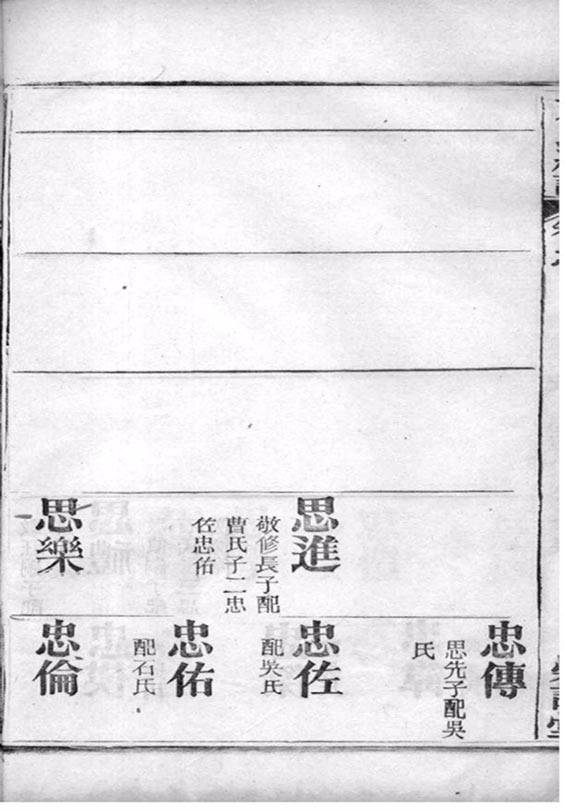 思進
敬修長子配
曹氏子二忠
佐忠佑
思樂
忠傳
思先子配吳
氏
忠佐
配吳氏
忠佑
配石氏
忠倫